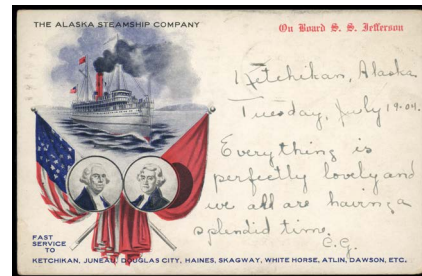 THE ALASKA STEAMSHIP COMPANY
On Board S. S. Jefferson
Ketchikan, Alaska
Tuesday, July 19-04.
Everything is
perfectly lovely and
we all are having a
splendid time.
C.G.
FAST
SERVICE
TO
KETCHIKAN, JUNEAU, DOUGLAS CITY, HAINES, SKAGWAY, WHITE HORSE, ATLIN, DAWSON, ETC.